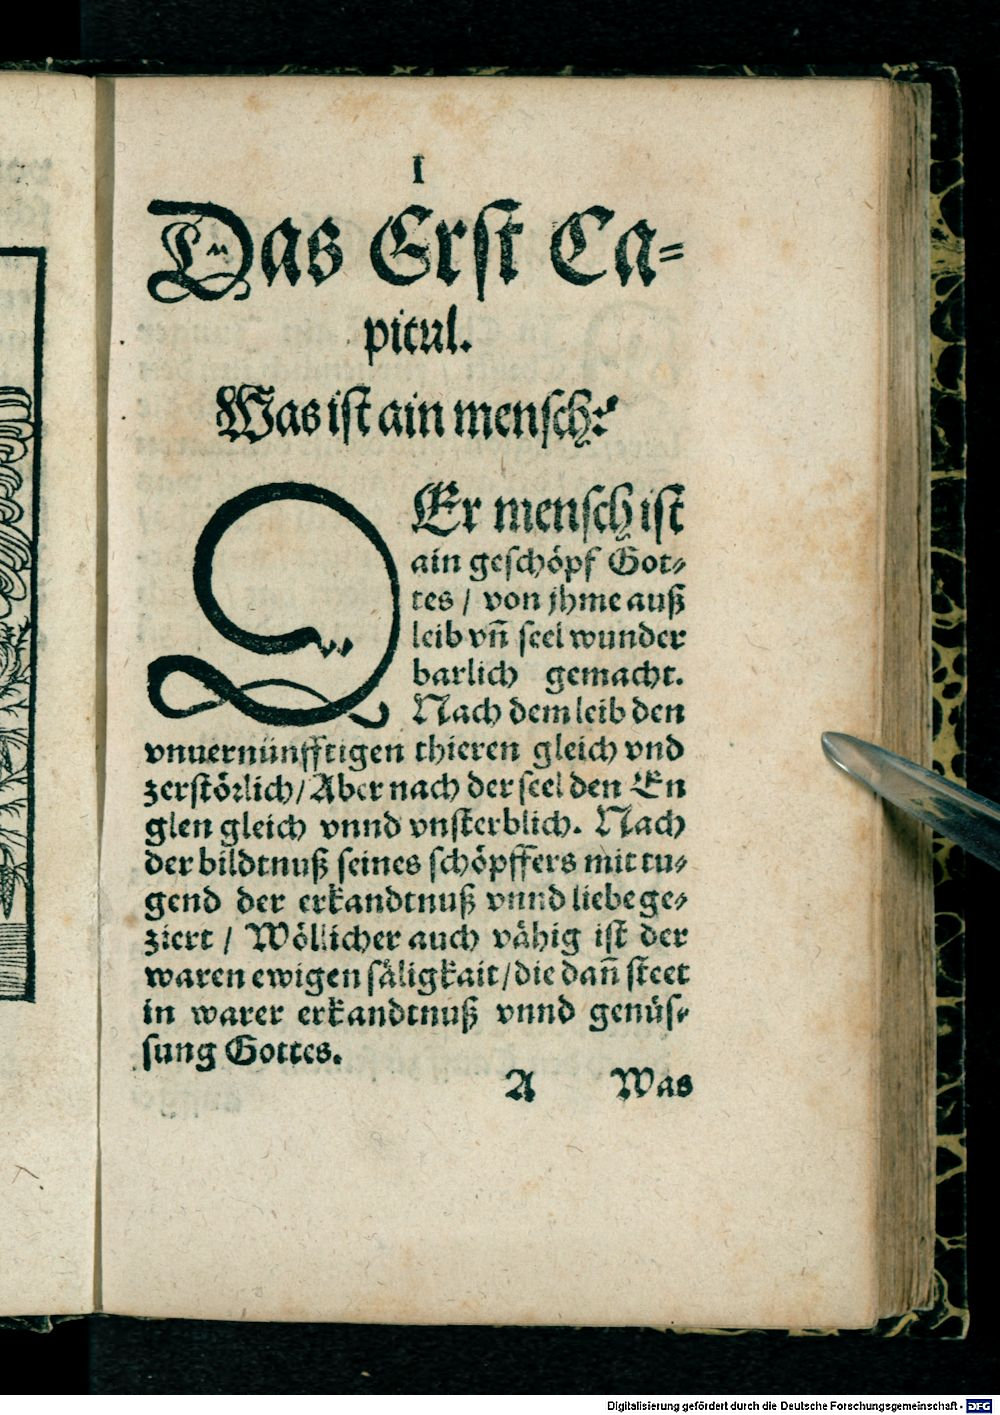 I
Das Erst Ca-
pitul.
Was ist ain mensch?
DEr mensch ist
ain geschöpf Got-
tes / von jhme auß
leib vñ seel wunder
barlich gemacht.
Nach dem leib den
vnuernünfftigen thieren gleich vnd
zerstörlich / Aber nach der seel den En
glen gleich vnnd vnsterblich. Nach
der bildtnuß seines schöpffers mit tu-
gend der erkandtnuß vnnd liebe ge-
ziert / Wöllicher auch vähig ist der
waren ewigen säligkait / die dañ steet
in warer erkandtnuß vnnd genüs-
sung Gottes.
A Was
Digitalisierung gefördert durch die Deutsche Forschungsgemeinschaft - DFG